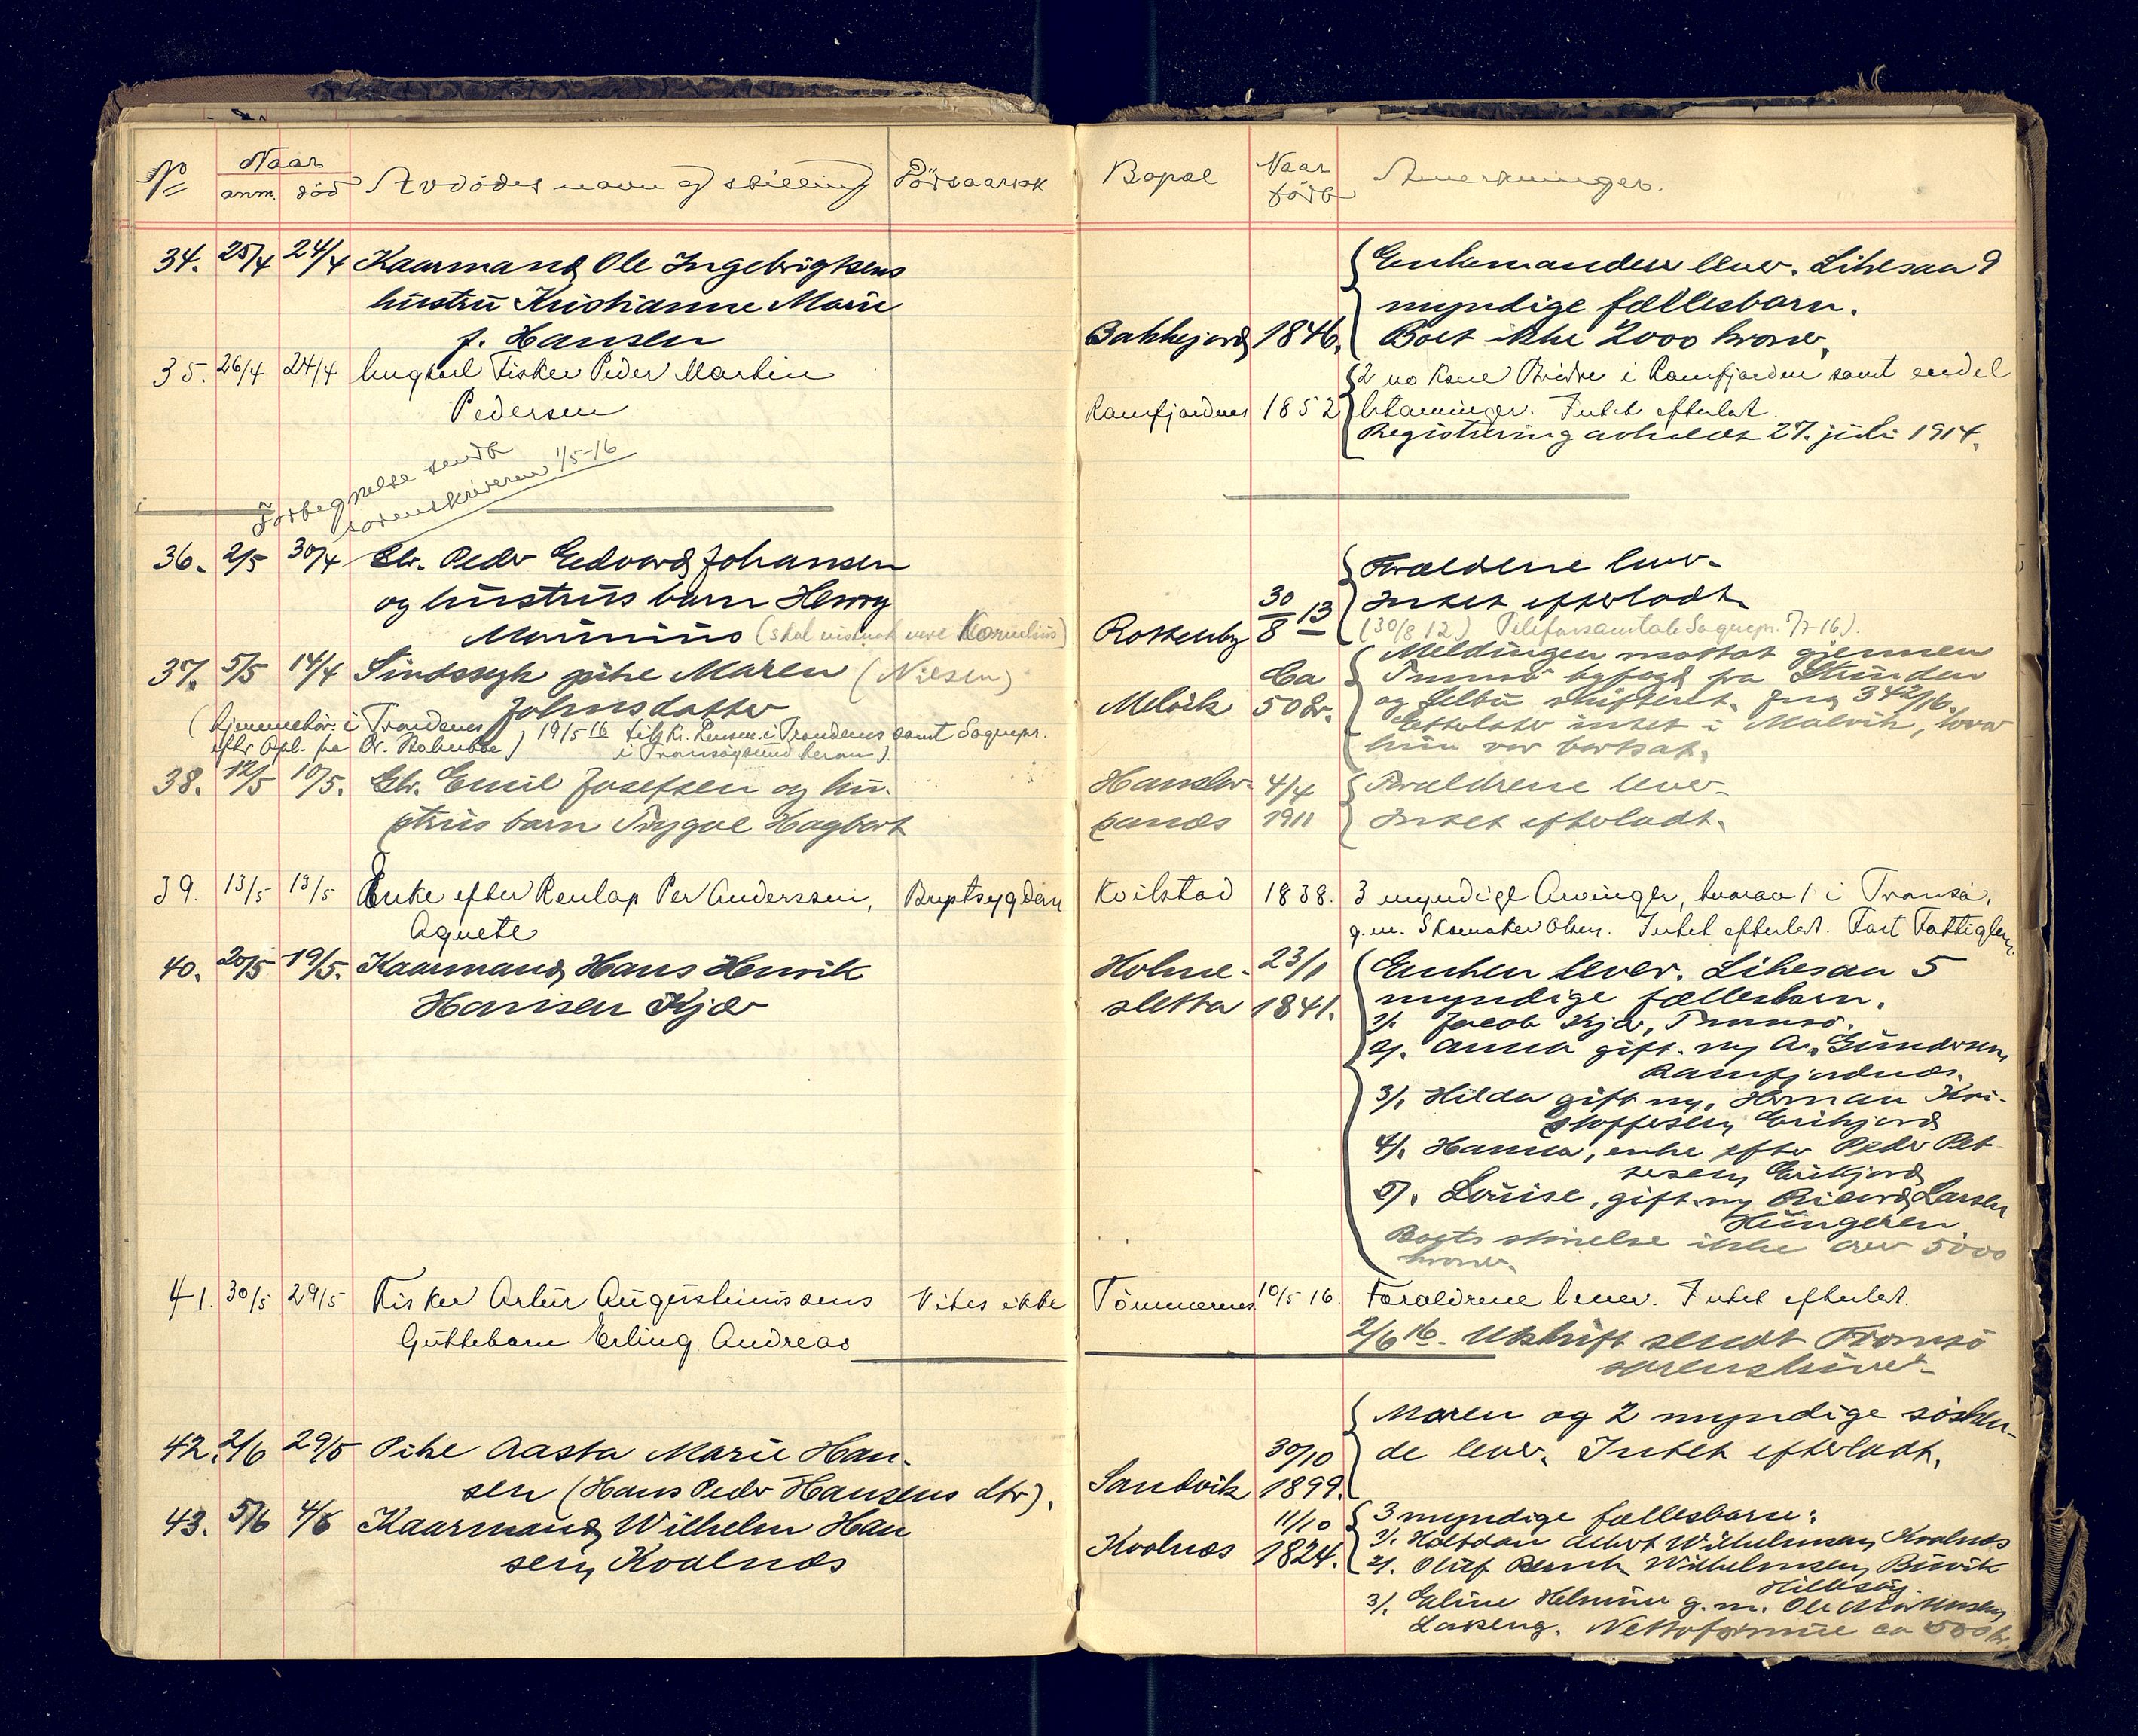 No Naar Avdödes navn og stilling Dödsaarsak Bopæl Naar Anmerkninger.
anm. död född
34. 25/4 24/4 Kaarmand Ole Ingebrigtsens Enkemanden lever. Likesaa 9
hustru Kristianne Marie myndige fællesbarn.
f. Hansen Bakkejord 1846. Boet ikke 2000 kroner.
35. 26/4 24/4 Ungkarl Fisker Peder Martin i Ramfjorden samt endel
Pedersen Ramfjordnes 1852 Intet efterlat.
Registrering avholdt 27. juli 1914.
Fortegnelse sendt
sorenskriveren 1/5-16
36. 2/5 30/4 Gbr. Peder Edvard Johansen Forældrene lever.
og hustrus barn Henry Intet efterladt.
(skal være Kornelius) 30/8 13 (30/8 12) 
37. 5/5 14/4 Sindssyk pike Maren (Nilsen) Ca Meldingen mottat gjennem
Johnsdatter Melvik 50 år. Tromsö byfogd fra Strinden
og Selbu skifteret. Jnr 342/16.
Efterlater intet i Malvik, hvor
hun var bortsat.
(hjemmehör. i Trondenes 19/5 16 i Trondenes samt
38. 12/5 10/5. Gbr. Emil Josefsen og hu- 4/4 Forældrene lever.
strus barn Trygve Hagbart 1911 Intet efterladt.
39. 13/5 13/5 Enke efter Renlap Per Anderssen, Brystsygdom Kvilstad 1838. 3 myndige Arvinger, hvorav 1 i Tromsö,
Agnete g.m. Skomaker Olsen. Intet efterlat. Fast Fattiglem
40. 20/5 19/5. Kaarmand Hans Henrik Holme- 23/1 Enken lever. Likesaa 5
Hansen Kjær sletta 1841. myndige fællesbarn.
1/. Jacob Kjær, Tromsö.
2/. Anna gift m/ A. Gundersen,
Ramfjordnes.
3/. Hilda gift m/. Herman Kri-
stoffersen, Erikjord
4/. Hanna, enke efter Peder Pet-
tersen, Erikjord
5/. Louise, gift m/ Rikard Larsen
Hungeren
Boets störrelse ikke over 5000
kroner.
41. 30/5 29/5 Fisker Artur Augustinussens Vites ikke Tömmernes 10/5 16. Forældrene lever. Intet efterlat.
Guttebarn Erling Andreas 2/6 16. Utskrift sendt Tromsö
sorenskriver
42. 2/6 29/5 Pike Aasta Marie Han- 30/10 Moren og 2 myndige sösken-
sen (Hans Peder Hansens dtr). Sandvik 1899. de lever. Intet efterladt.
43. 5/6 4/6 Kaarmand Wilhelm Han 11/10 3 myndige fællesbarn:
sen, Kvalnes Kvalnes 1824. 1/. Halfdan Albert Wilhelmsen, Kvalnes
2/. Oluf Bernh. Wilhelmsen, Buvik
Hillesöy.
3/. Eline Helmine g.m. Ole Mortensen,
Lakseng. Nettoformue ca 500 kr.